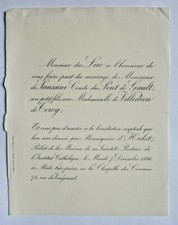 Monsieur du Luc a l'honneur de
vous faire part du mariage de Monsieur
de Saussine Comte du Pont de Gault,
son petit-fils, avec Mademoiselle de Villedieu
de Torcy,
Et vous prie d'assister à la bénédiction nuptiale qui
leur sera donnée par Monseigneur d'Hulst,
Prélat de la Maison de sa Sainteté, Recteur de
l'Institut Catholique, le Mardi 7 Décembre 1886,
à Midi très précis, en la Chapelle des Carmes
74, rue de Vaugirard.